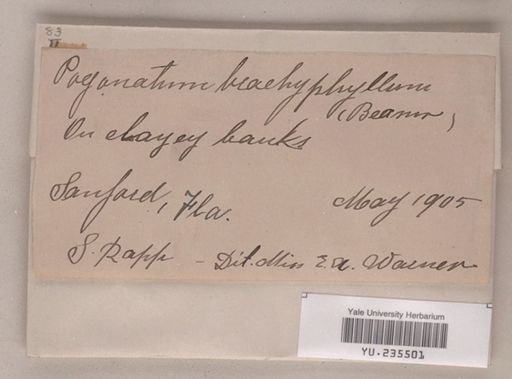 83
Pogonatum brachyphyllum
(Beauv)
On clayey banks
Sanford, Fla. May 1905
S. Rapp - Det. Miss E. A. Warner
Yale University Herbarium
YU.235501